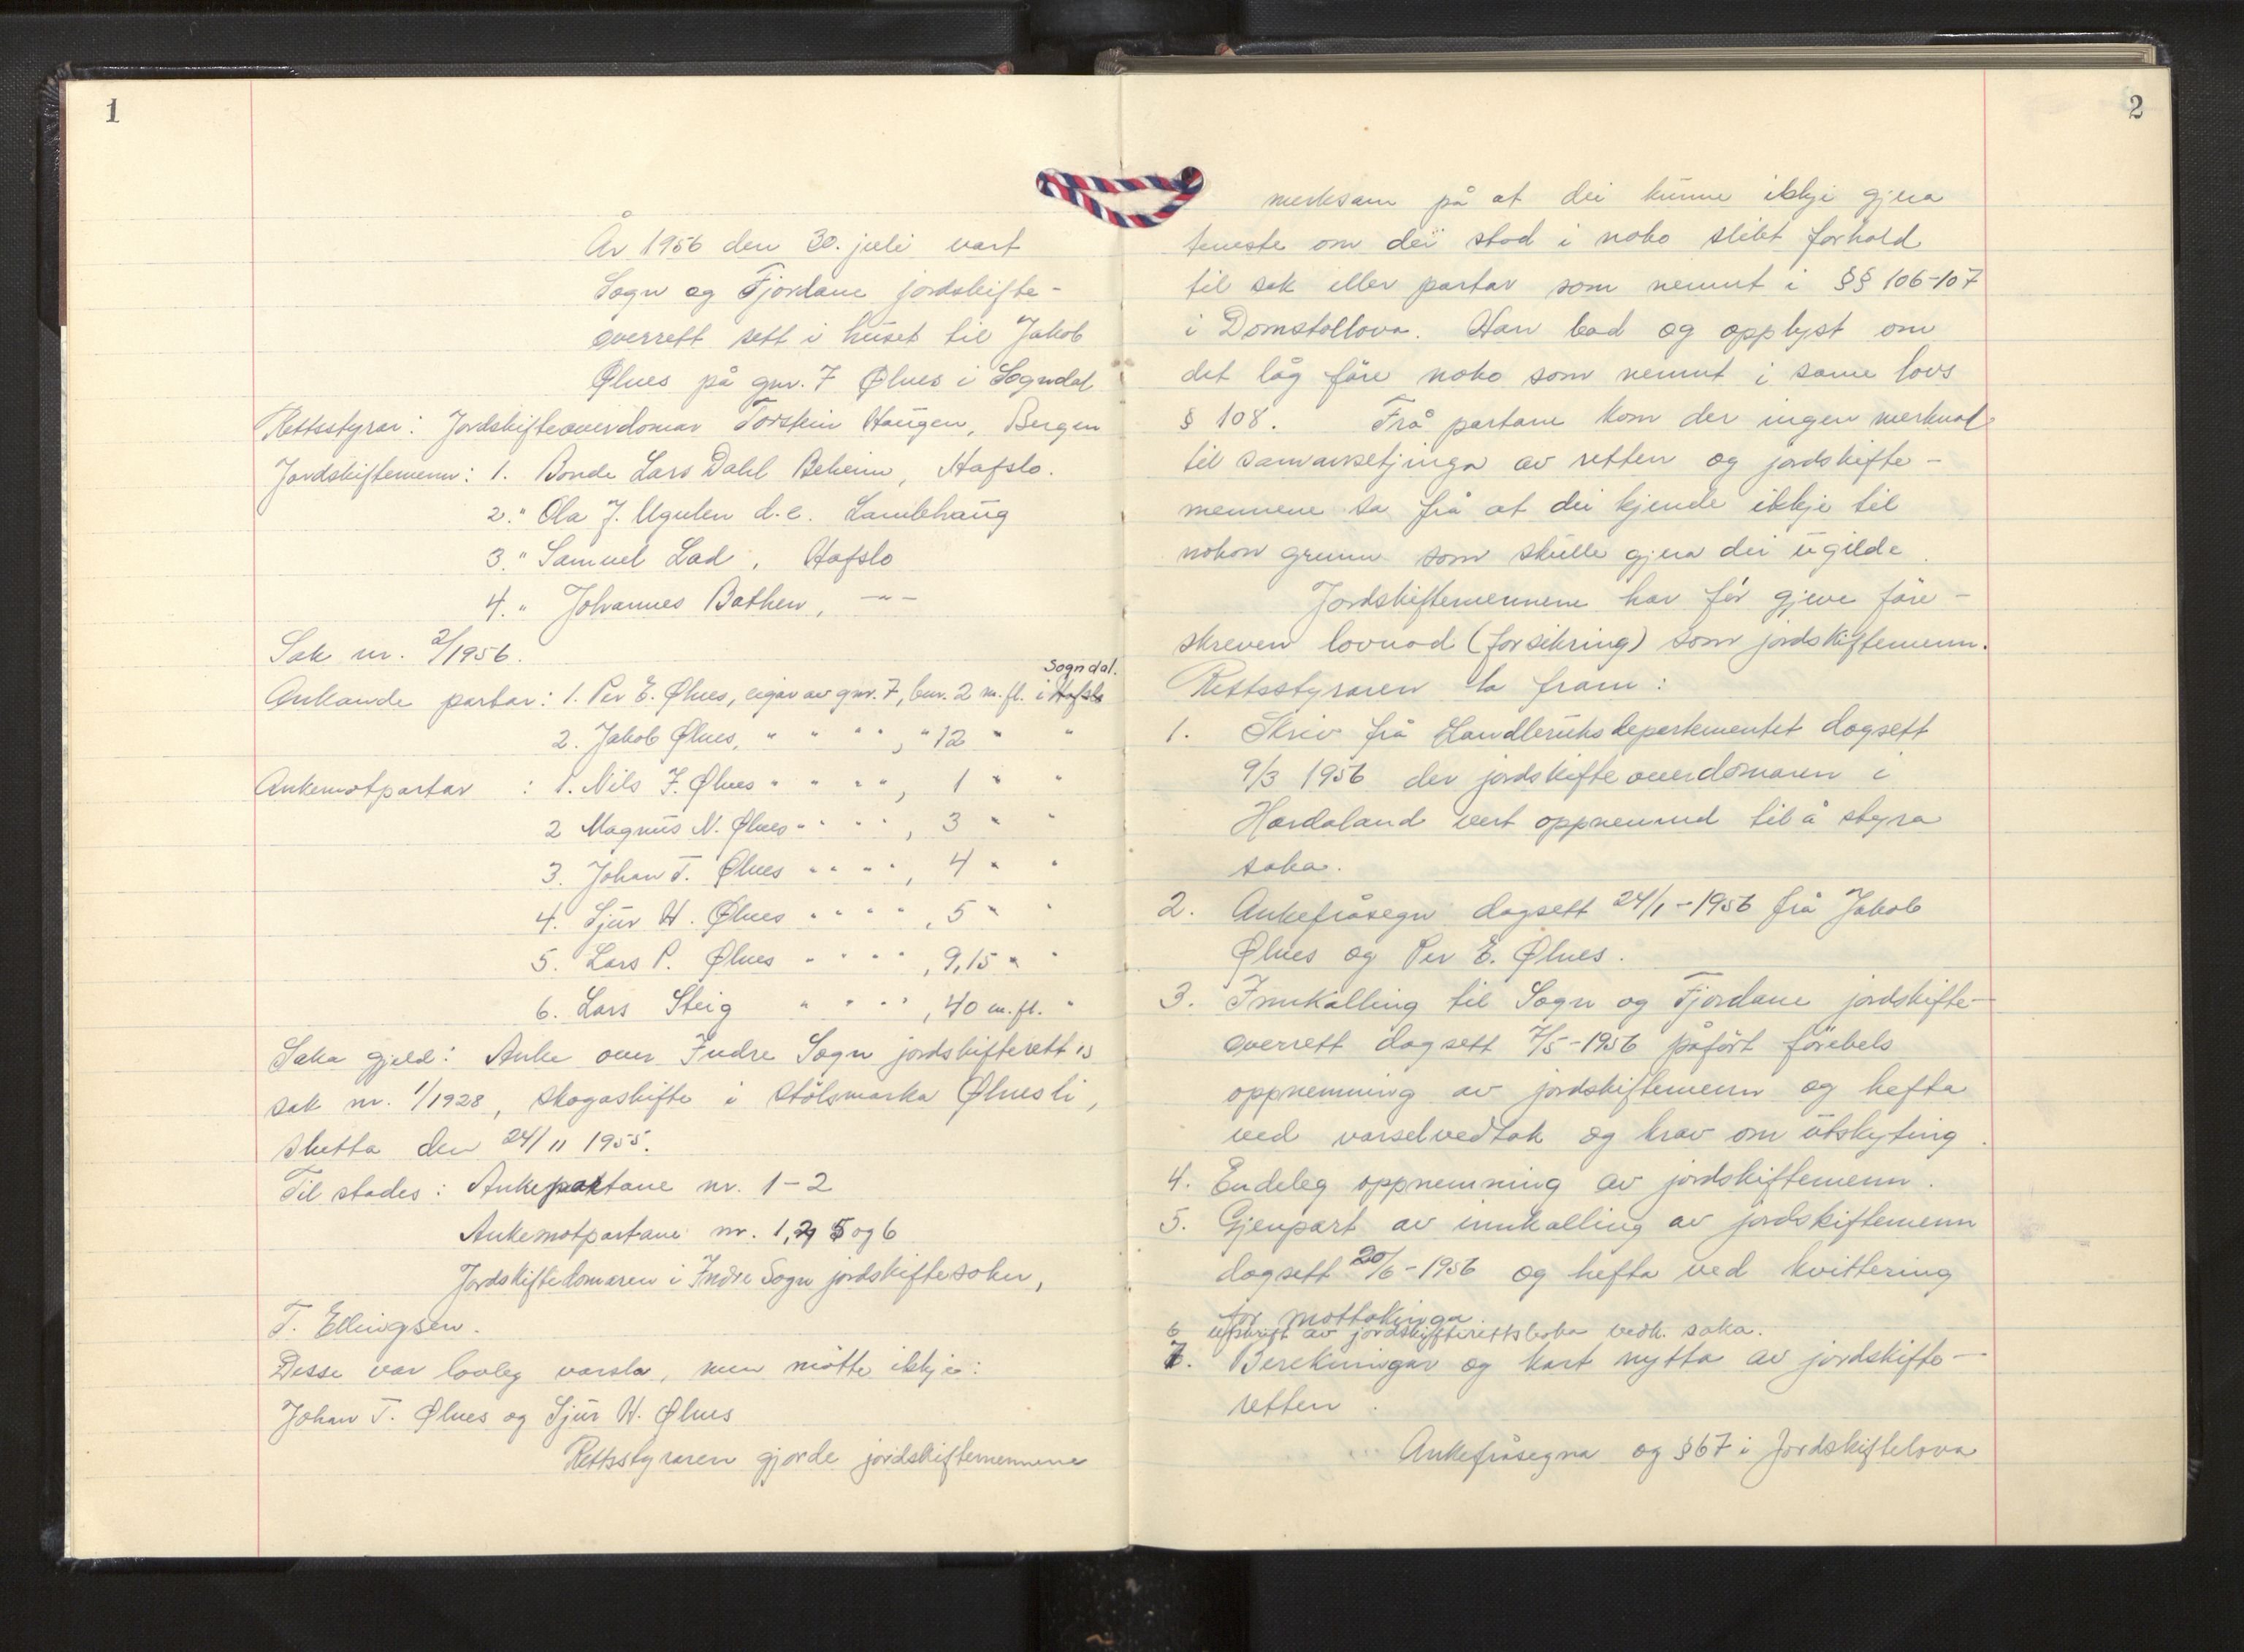 1
År 1956 den 30. juli vart
Sogn og Fjordane jordskifte-
overrett sett i huset til Jakob
Ølnes på gnr. 7 Ølnes i Sogndal
Rettsstyrar: Jordskifteoverdomar Torstein Haugen, Bergen
Jordskiftemenn: 1. Bonde Lars Dahl Beheim, Hafslo.
2. " Ola J. Ugulen d.e. Lambhaug
3. " Samuel Lad, Hafslo
4. " Johannes Bathen, -"-
Sak nr. 2/1956.
Sogndal.
Ankande partar: 1. Per E. Ølnes, eigar av gnr. 7, bnr. 2 m.fl. i Hafslo
2. Jakob Ølnes, " " " ", " 12 " "
Ankemotpartar : 1. Nils J. Ølnes " " " ", 1 " "
2 Magnus N. Ølnes " " " ", 3 " "
3. Johan T. Ølnes " " " ", 4 " "
4. Sjur H. Ølnes " " " ", 5 " "
5. Lars P. Ølnes " " " ", 9,15 " "
6. Lars Steig " " " ", 40 m.fl. "
Saka gjeld: Anke over Indre Sogn jordskifterett's
sak nr. 1/1928, skogaskifte i stölsmarka Ølnesli,
slutta den 24/11 1955.
Til stades: Ankepartane nr. 1-2
Ankemotpartane nr. 1, 2, 5 og 6
Jordskiftedomaren i Indre Sogn jordskiftesokn,
T. Ellingsen.
Desse var lovleg varsla, men mötte ikkje:
Johan T. Ølnes og Sjur H. Ølnes
Rettsstyraren gjorde jordskiftemennene
2
merksam på at dei kunne ikkje gjera
teneste om dei stod i noko slikt forhold
til sak eller partar som nemnt i §§ 106-107
i Domstollova. Han bad og opplyst om
det låg före noko som nemnt i same lovs
§ 108. Frå partane kom der ingen merknad
til samansetjinga av retten og jordskifte-
mennene sa frå at dei kjende ikkje til
nokon grunn som skulle gjera dei ugilde.
Jordskiftemennene har för gjeve före-
skreven lovnad (forsikring) som jordskiftemenn.
Rettsstyraren la fram:
1. Skriv frå Landbruksdepartementet dagsett
9/3 1956 der jordskifteoverdomaren i
Hordaland vert oppnemnd til å styra
saka.
2. Ankefråsegn dagsett 24/1-1956 frå Jakob
Ølnes og Per E. Ølnes.
3. Innkalling til Sogn og Fjordane jordskifte-
overrett dagsett 7/5-1956 påfört förebels
oppnemning av jordskiftemenn og hefta
ved varselvedtak og krav om utskyting.
4. Endeleg oppnemning av jordskiftemenn.
5. Gjenpart av innkalling av jordskiftemenn
dagsett 20/6-1956 og hefta ved kvittering
for mottakinga.
6 utskrift av jordskifterettsboka vedk. saka.
7. Berekningar og kart nytta av jordskifte-
retten.
Ankefråsegna og § 67 i Jordskiftelova